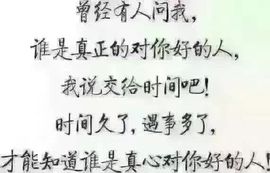 曾经有人问我,
谁是真正的对你好的人,
我说交给时间吧!
时间久了,遇事多了,
才能知道谁是真心对你好的人!